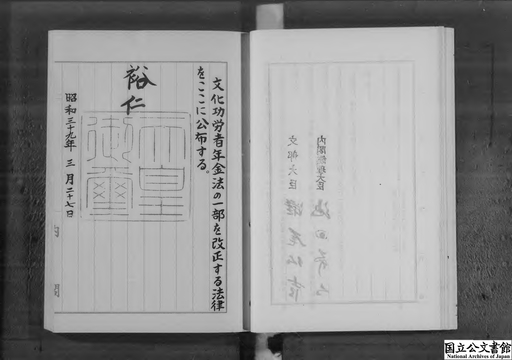 文化功労者年金法の一部を改正する法律
をここに公布する。
裕仁
天皇
御璽
昭和三十九年三月二十七日
内閣総理大臣
文部大臣
国立公文書館
National Archives of Japan